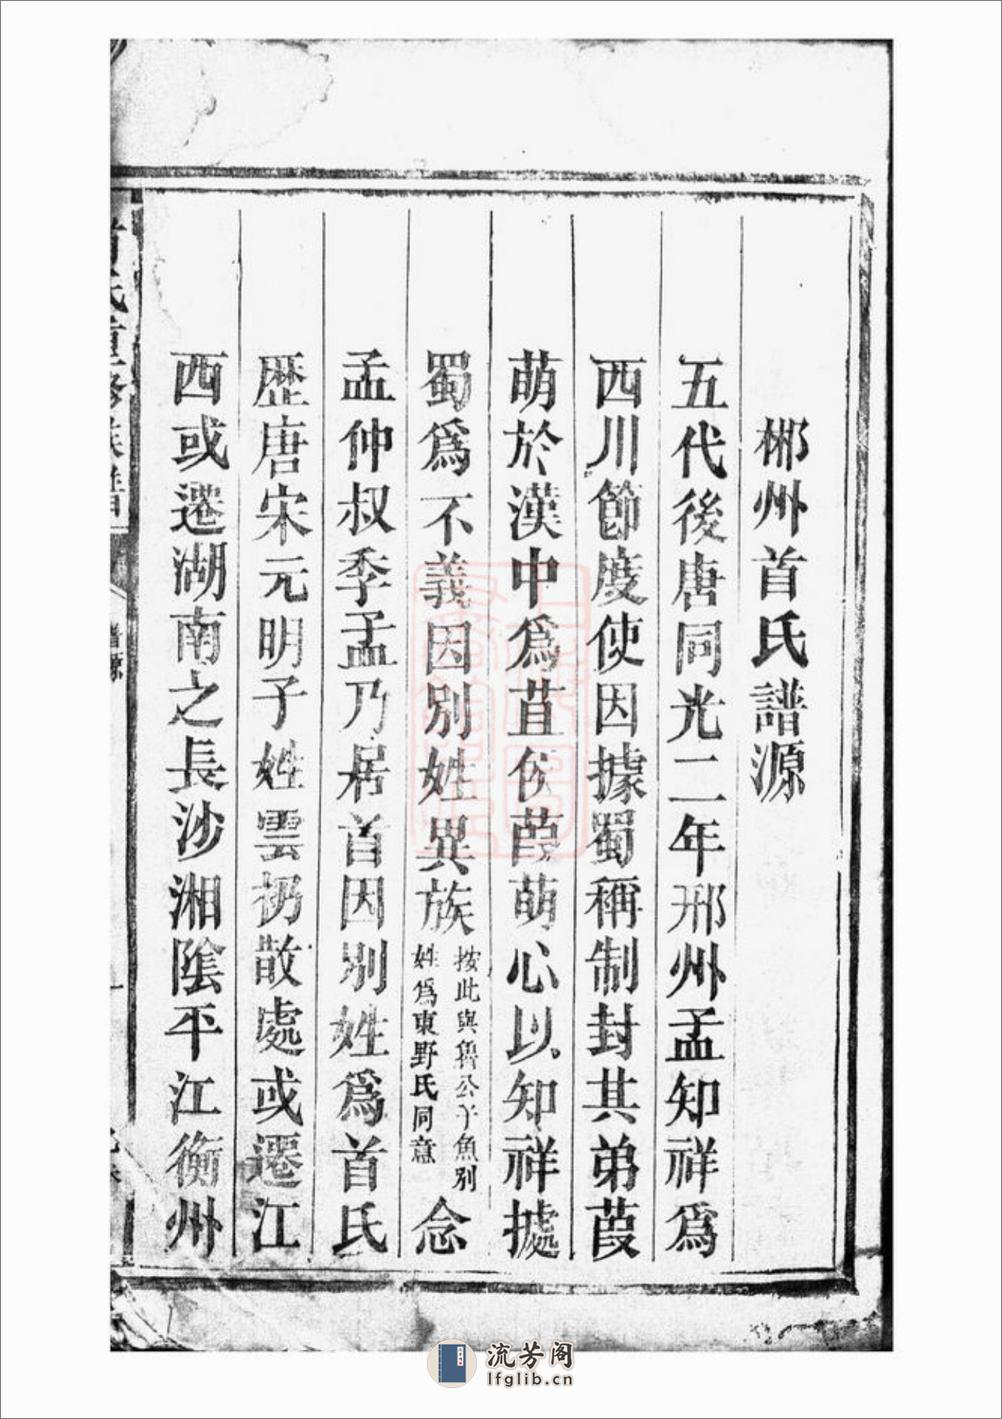 郴州首氏譜源
五代後唐同光二年邢州孟知祥爲
西川節度使因據蜀稱制封其弟葭
萌於漢中爲苴侯葭萌心以知祥據
蜀爲不義因別姓異族按此與魯公子魚別姓爲東野氏同意念
孟仲叔季孟乃居首因別姓爲首氏
歷唐宋元明子姓雲扔散處或遷江
西或遷湖南之長沙湘陰平江衡州
首氏重修族譜
譜源
流芳阁
lfglib.cn